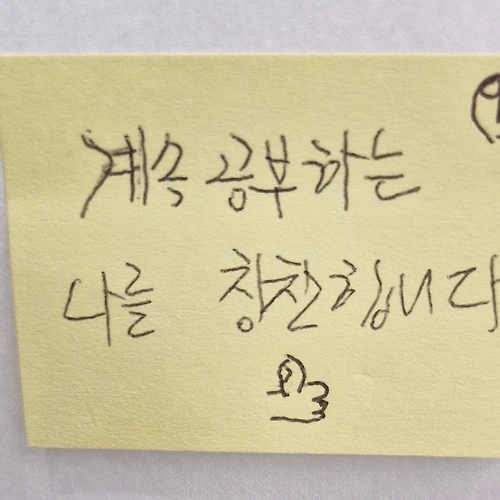 계속 공부하는
나를 칭찬합니다